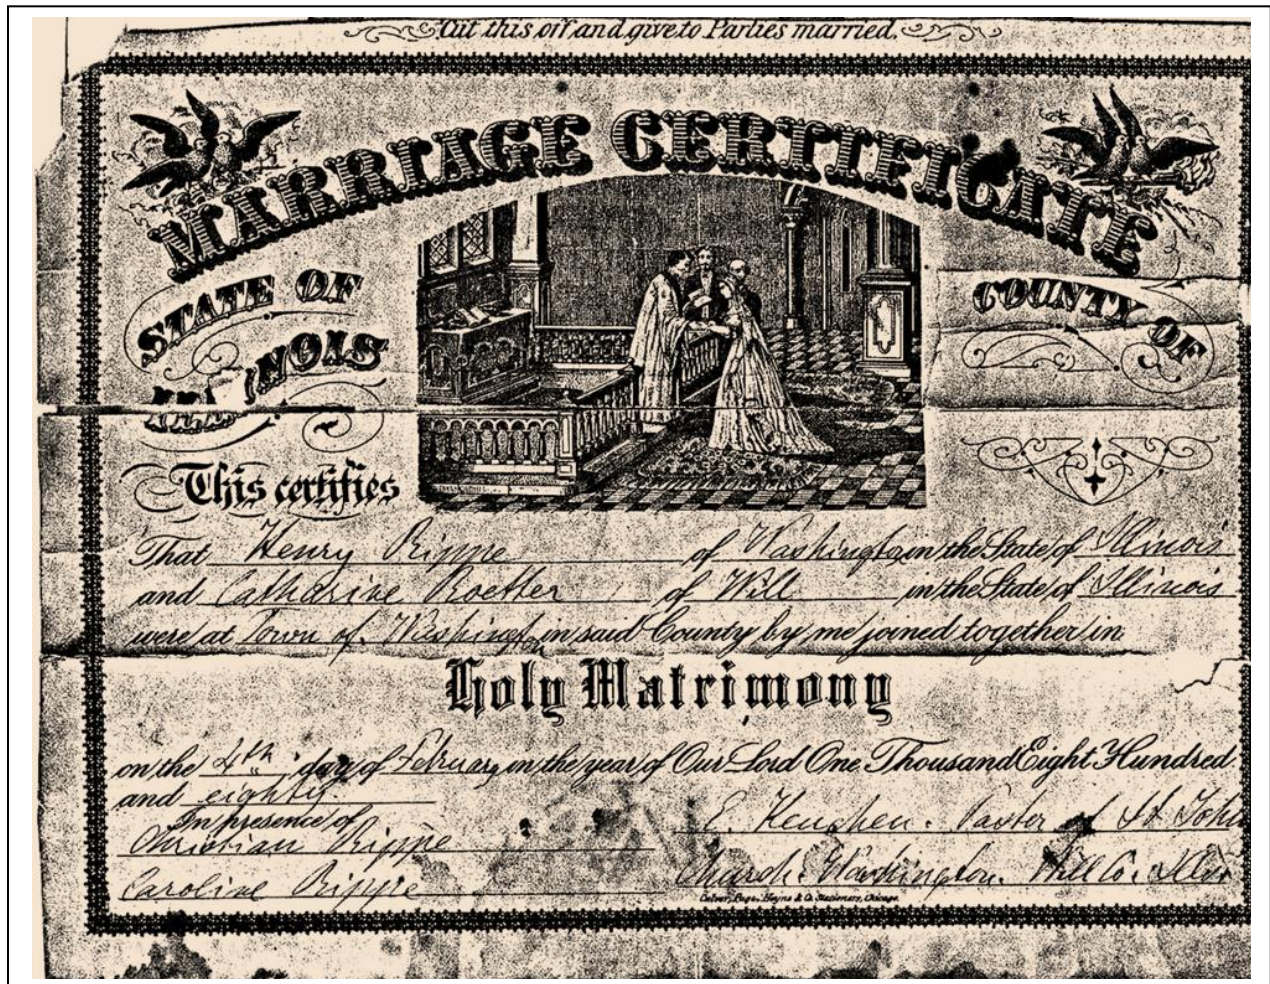 Cut this off and give to Parties married.
MARRIAGE CERTIFICATE
STATE OF
ILLINOIS
COUNTY OF
This certifies
That Henry Rippe of Washington in the State of Illinois
and Catharine Roetter of Will in the State of Illinois
were at Town of Washington in said County by me joined together in
Holy Matrimony
on the 4th day of February in the year of Our Lord One Thousand Eight Hundred
and eighty
In presence of
Christian Rippe
E. Heuchen. Paster of St John
Caroline Rippe
Church. Washington. Will Co. Ills
Culver, Page, Hoyne & Co. Stationers, Chicago.